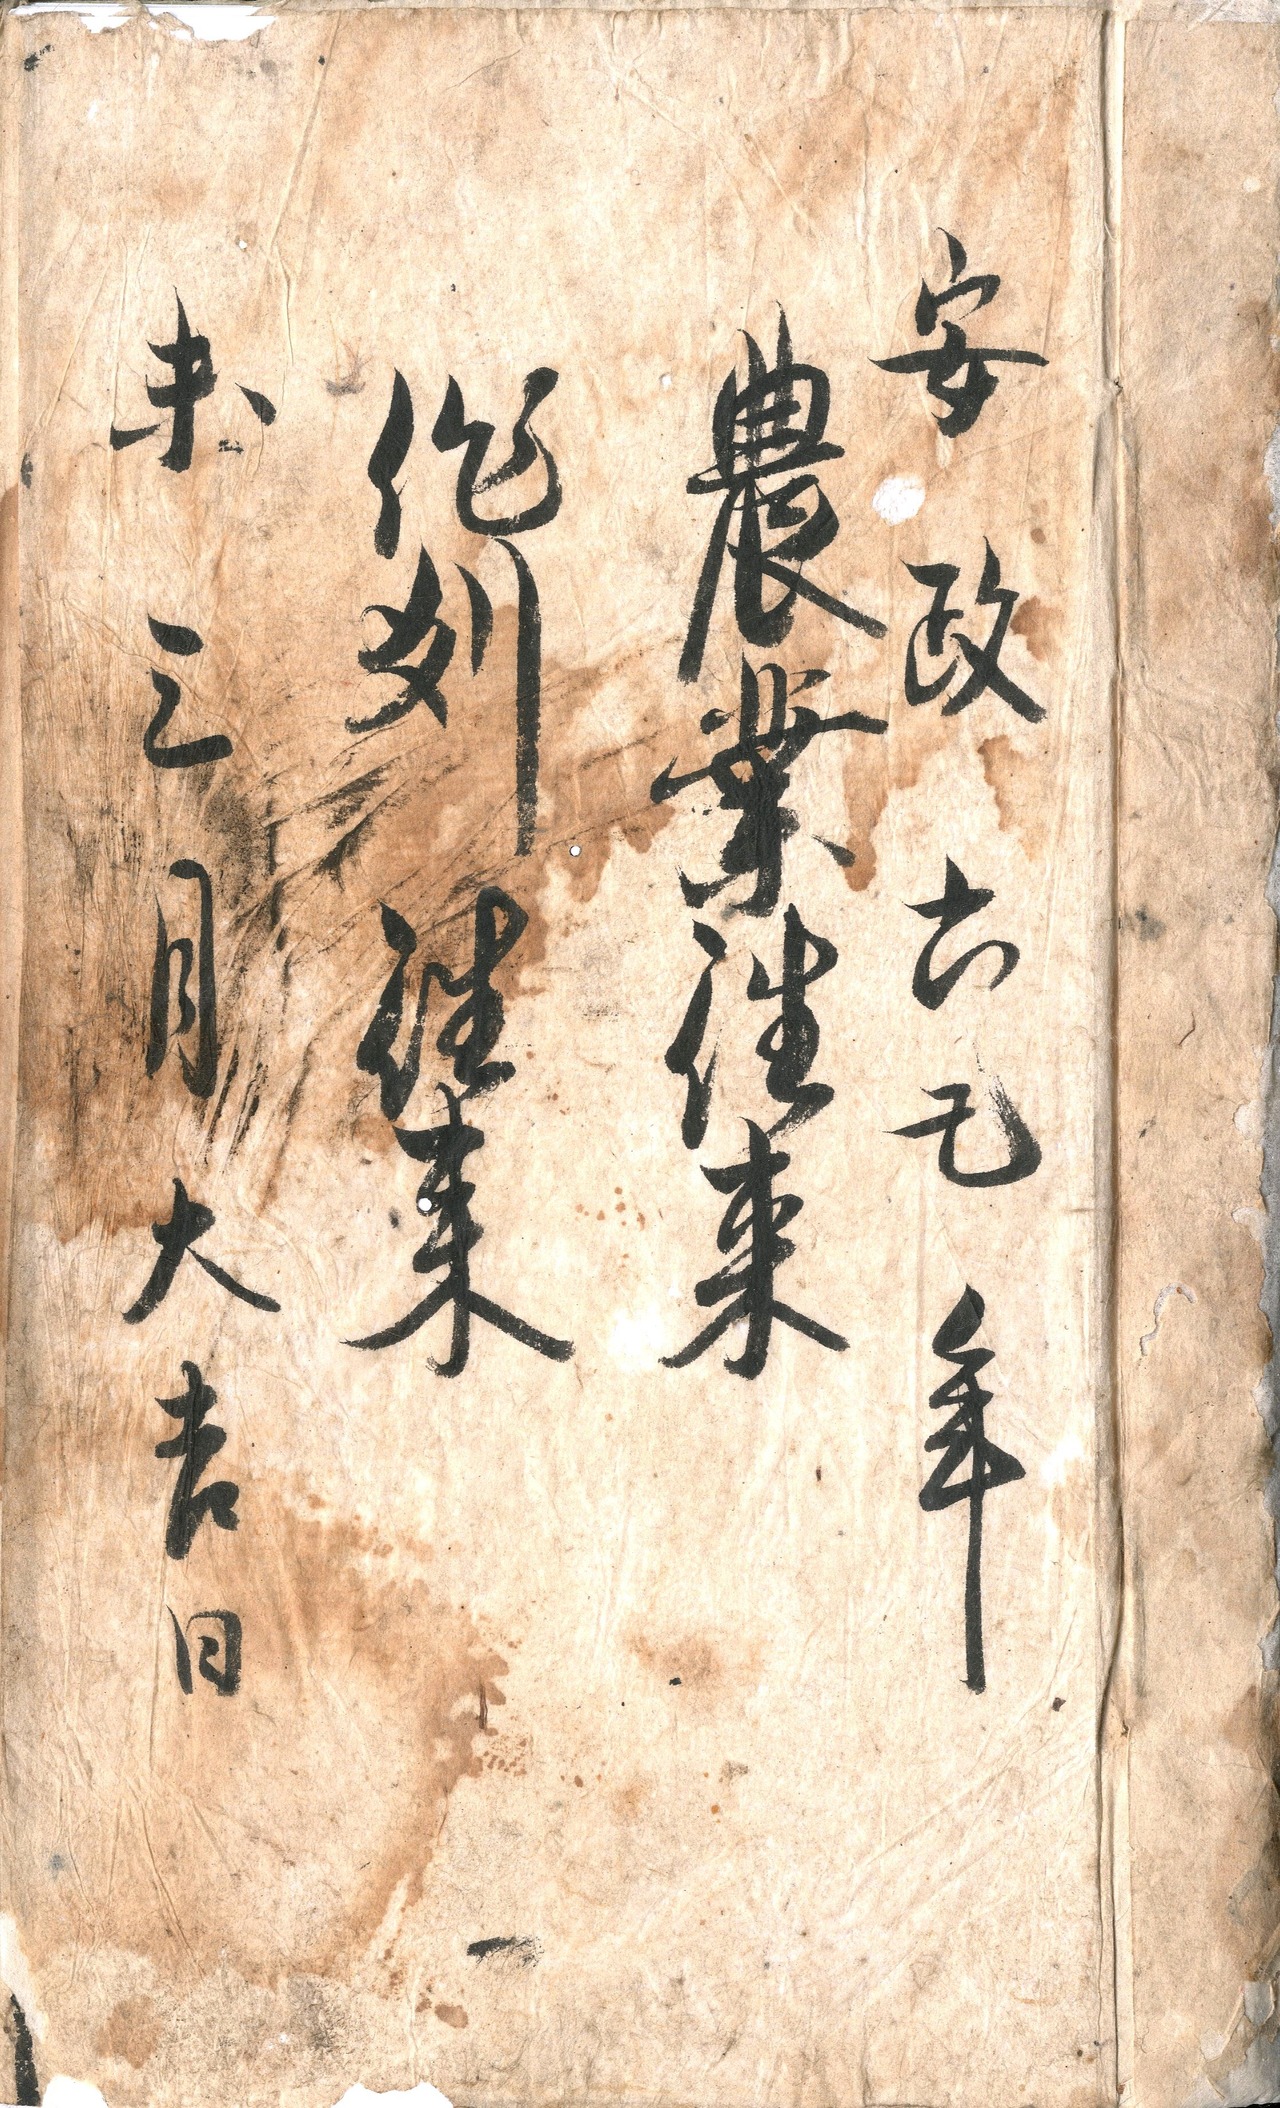 安政六己年
農業往来
往来
未三月大吉日